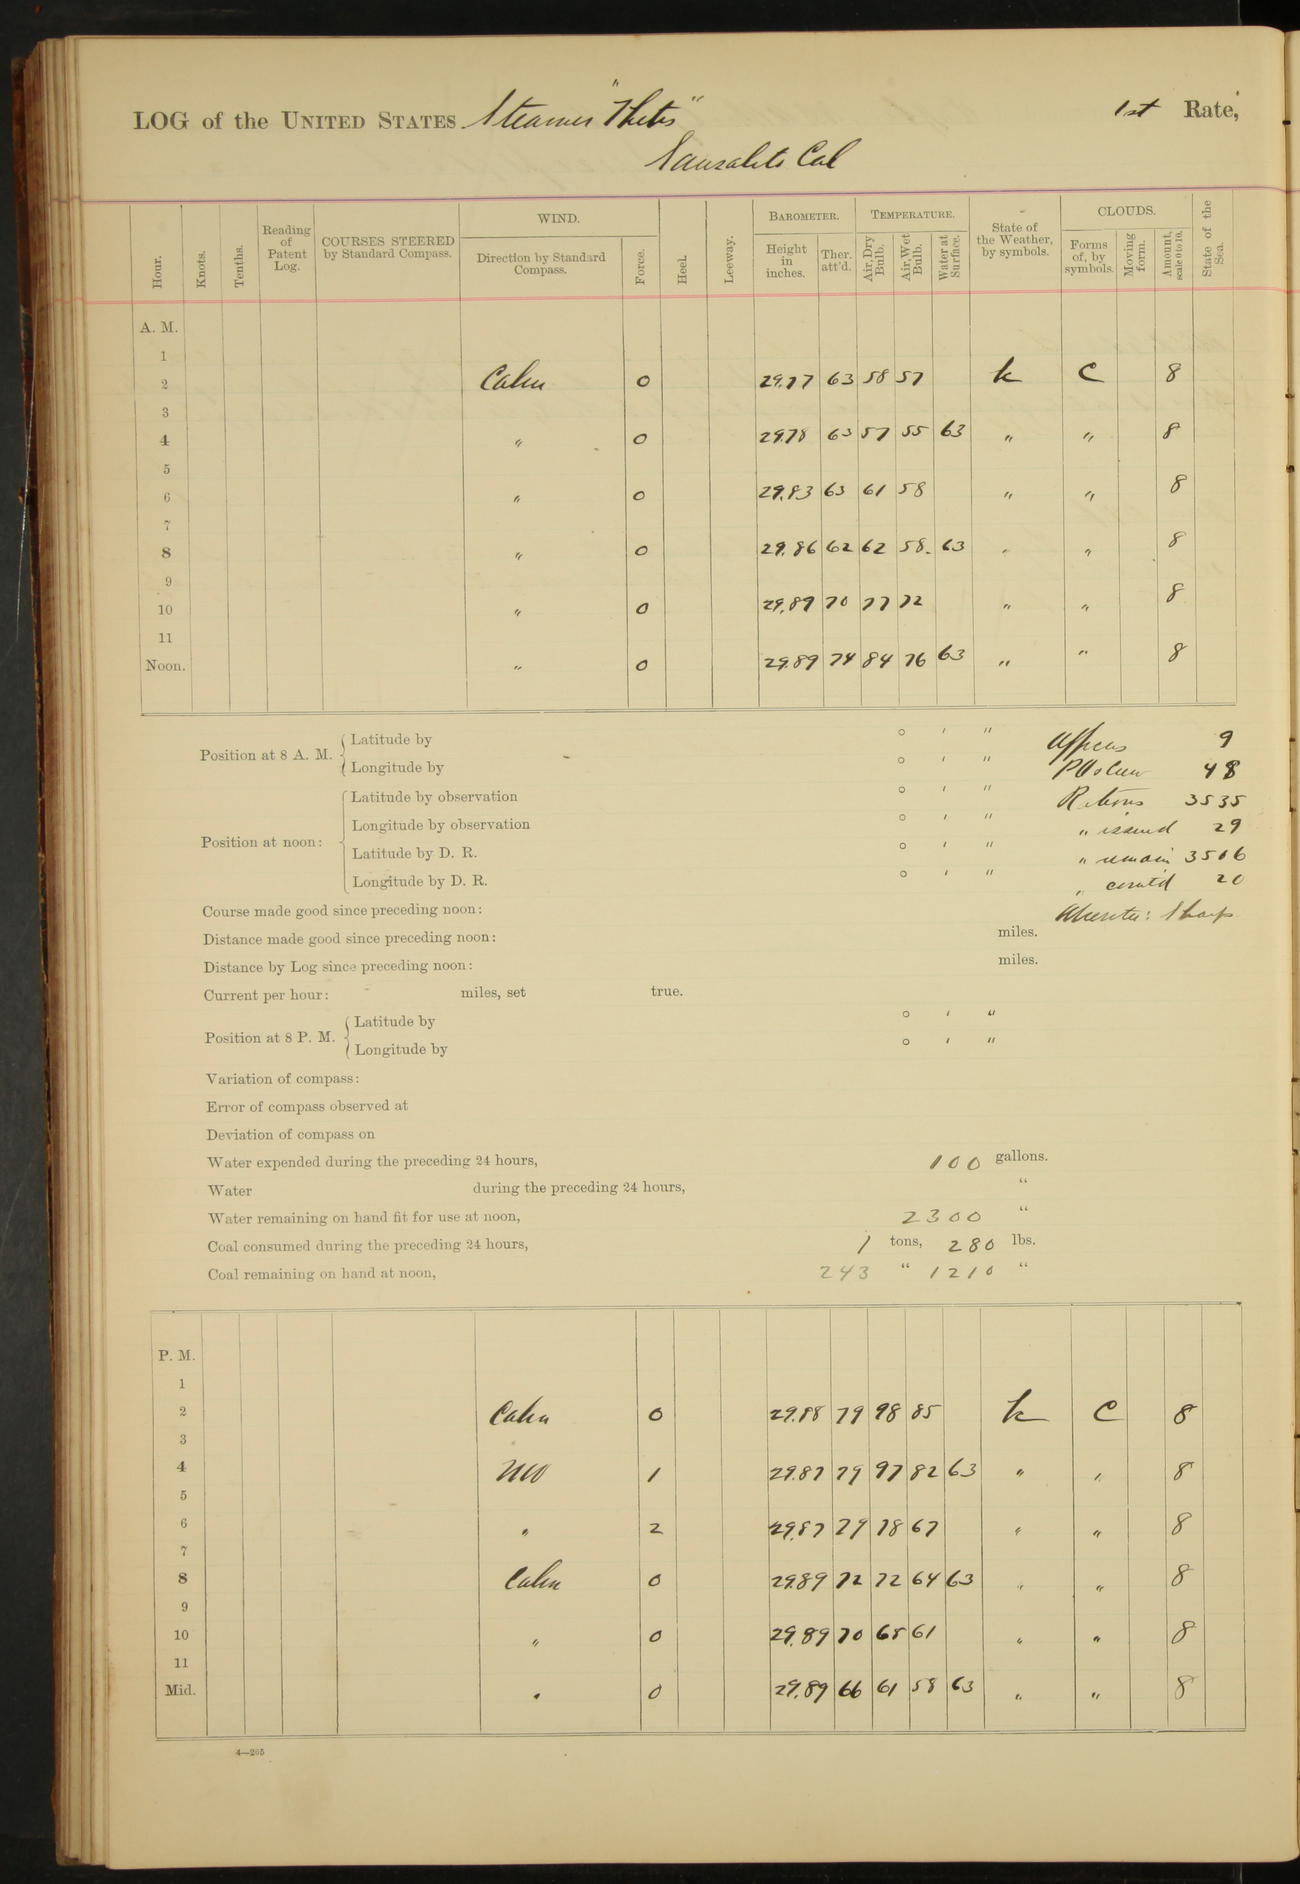 LOG of the UNITED STATES Steamer "Thetis" 1st Rate,
Sausalito Cal
Hour. Knots. Tenths. Reading of Patent Log. COURSES STEERED by Standard Compass. WIND. Direction by Standard Compass. Force. Heel. Leeway. BAROMETER. Height in inches. Ther. att'd. TEMPERATURE. Air, Dry Bulb. Air, Wet Bulb. Water at Surface. State of the Weather, by symbols. CLOUDS. Forms of, by symbols. Moving form. Amount, scale 0 to 10. State of the Sea.
A. M.
1
2 Calm 0 29.77 63 58 57 C 8
3
4 " 0 29.78 63 57 55 63 " " 8
5
6 " 0 29.83 63 61 58 " " 8
7
8 " 0 29.86 62 62 58. 63 " " 8
9
10 " 0 29.89 70 77 72 " " 8
11
Noon. " 0 29.89 74 84 76 63 " " 8
Position at 8 A. M. Latitude by ° ′ ″
Longitude by ° ′ ″
Position at noon: Latitude by observation ° ′ ″
Longitude by observation ° ′ ″
Latitude by D. R. ° ′ ″
Longitude by D. R. ° ′ ″
Officers 9
48
Rations 3535
" issued 29
" remain 3506
" 20
Absentee: Sharp
Course made good since preceding noon:
Distance made good since preceding noon: miles.
Distance by Log since preceding noon: miles.
Current per hour: miles, set true.
Position at 8 P. M. Latitude by ° ′ ″
Longitude by ° ′ ″
Variation of compass:
Error of compass observed at
Deviation of compass on
Water expended during the preceding 24 hours, 100 gallons.
Water during the preceding 24 hours, "
Water remaining on hand fit for use at noon, 2300 "
Coal consumed during the preceding 24 hours, 1 tons, 280 lbs.
Coal remaining on hand at noon, 243 " 1210 "
P. M.
1
2 Calm 0 29.88 79 98 85 C 8
3
4 NW 1 29.87 79 97 82 63 " " 8
5
6 " 2 29.87 79 78 67 " " 8
7
8 Calm 0 29.89 72 72 64 63 " " 8
9
10 " 0 29.89 70 65 61 " " 8
11
Mid. " 0 29.89 66 61 58 63 " " 8
4—265